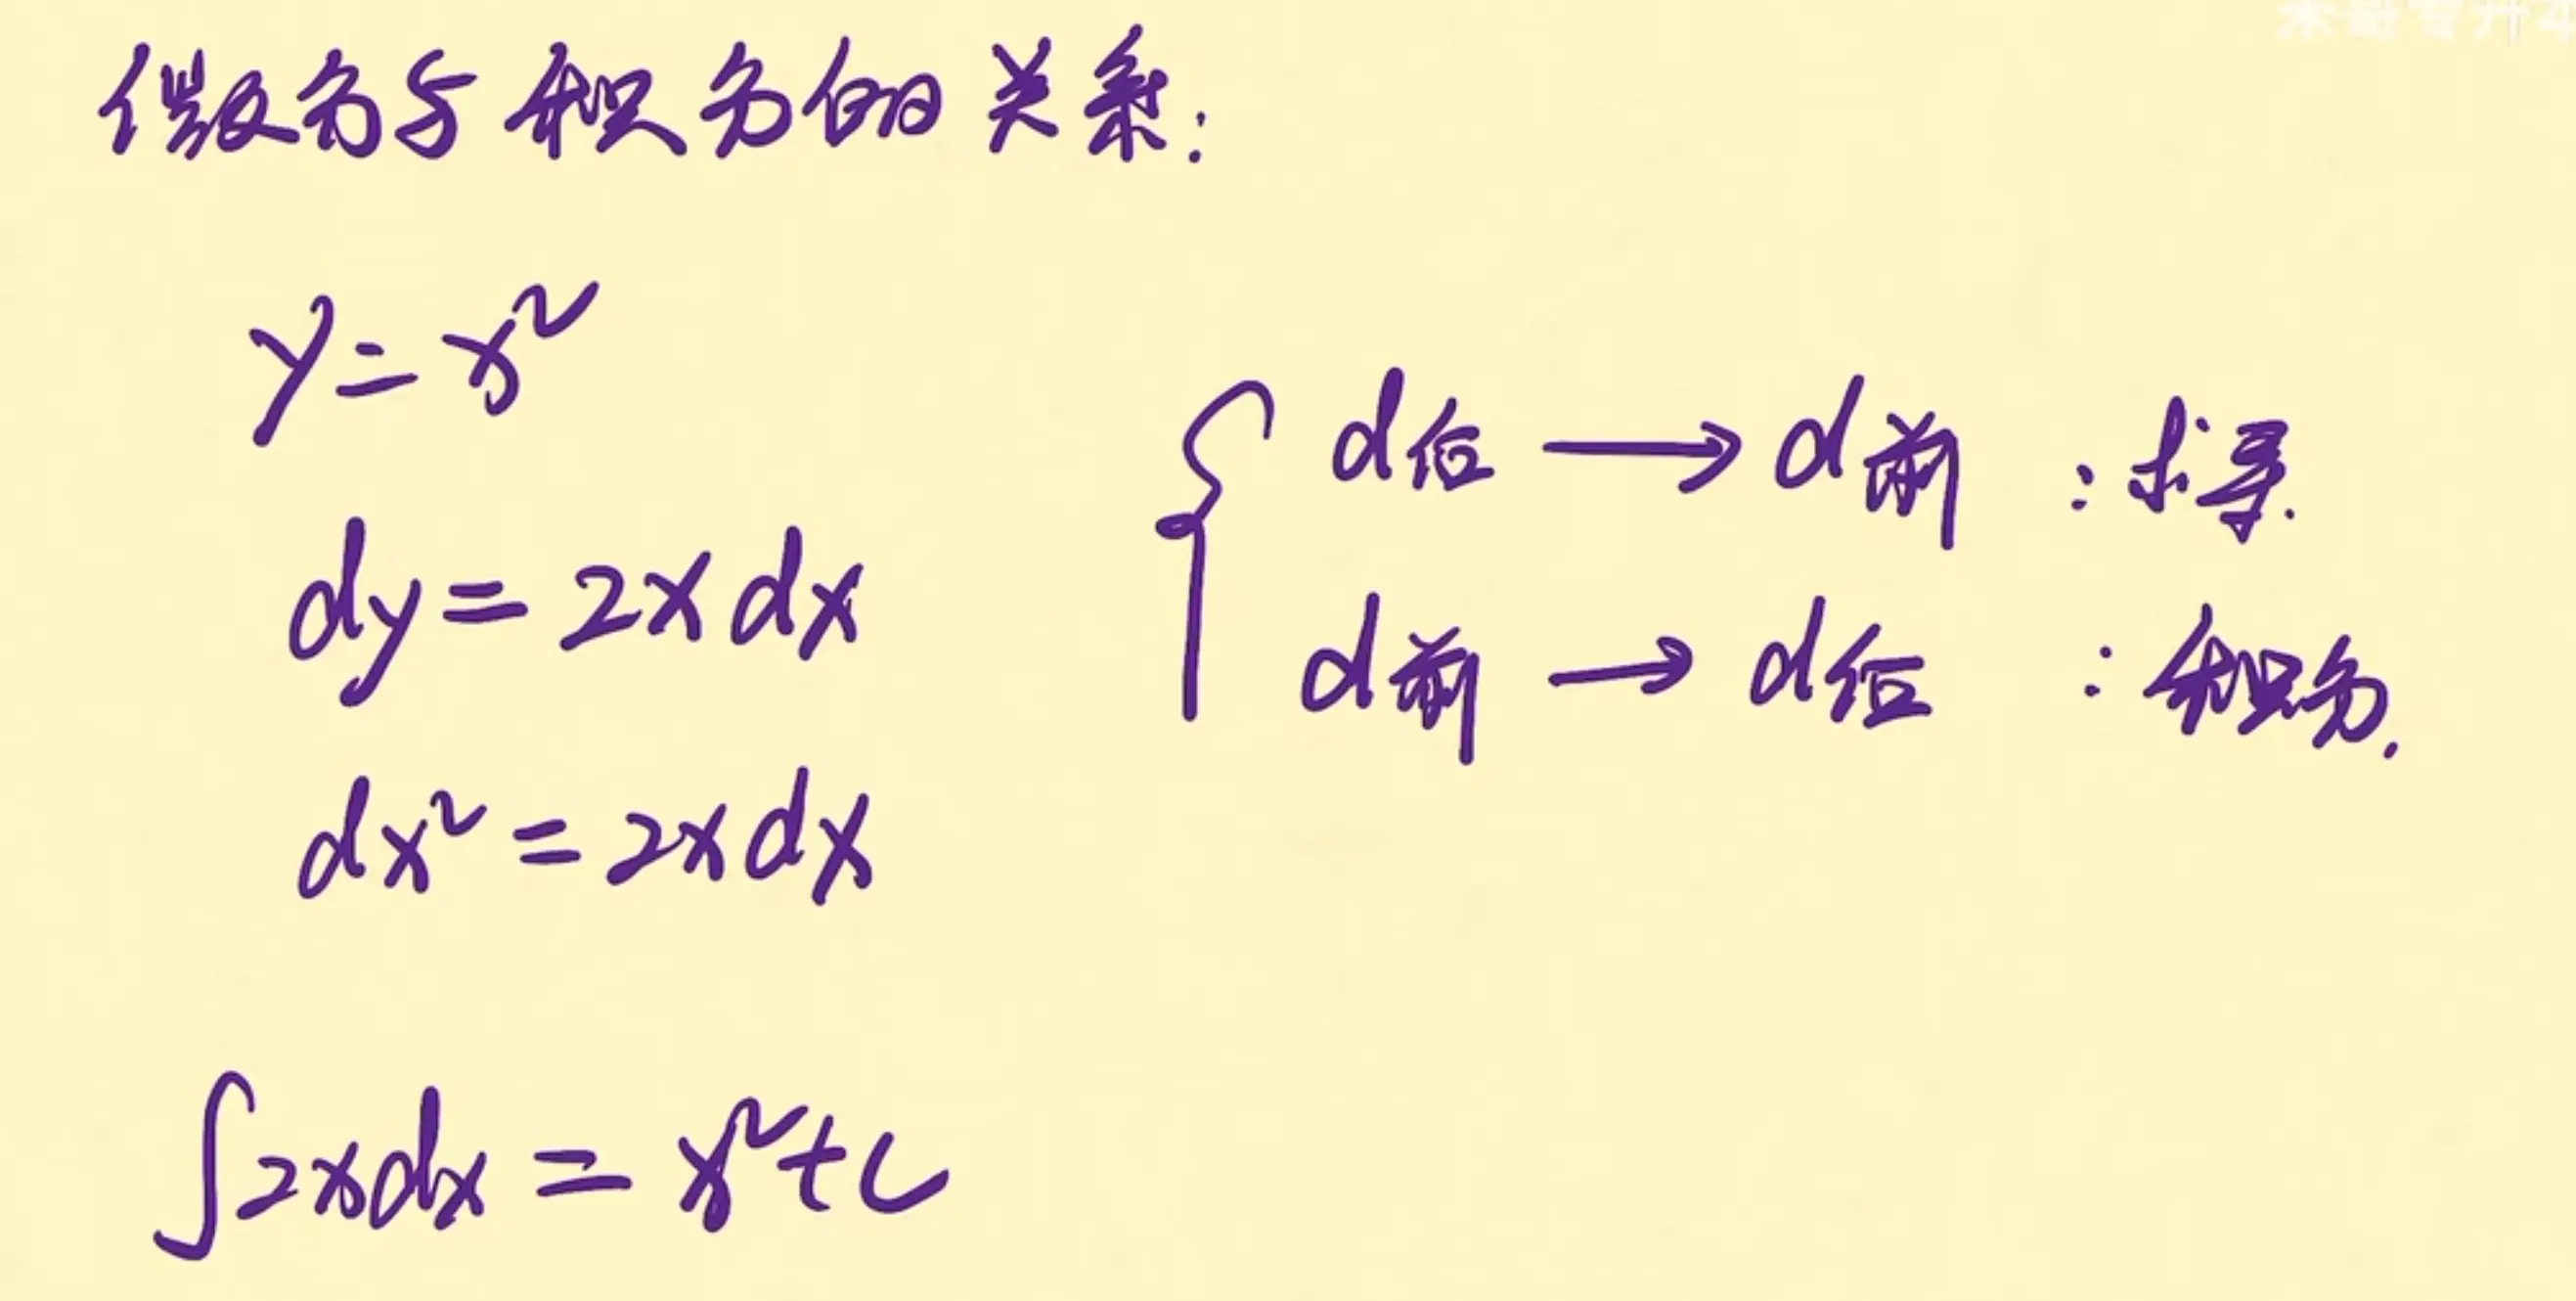 微分与积分的关系:
y=x²
dy=2xdx
dx²=2xdx
∫2xdx=x²+C
d后→d前:求导.
d前→d后:积分.